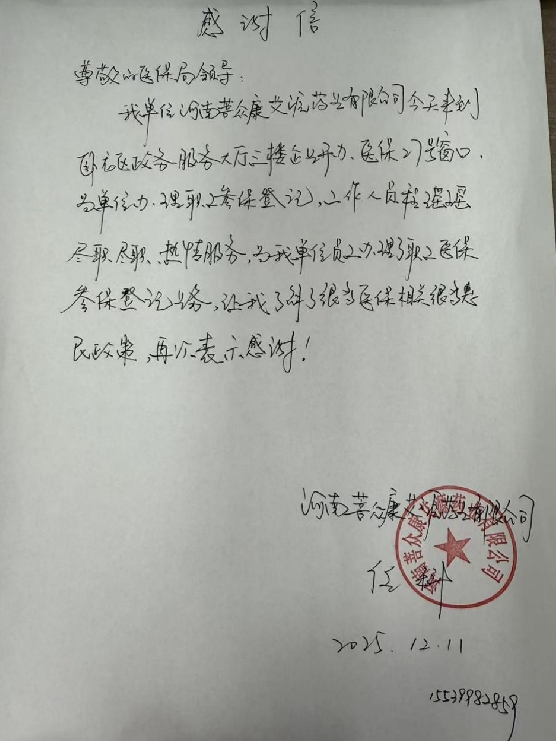 感谢信
尊敬的医保局领导：
我单位河南菩众康艾浣药业有限公司今天来到
卧龙区政务服务大厅三楼企业开办、医保27号窗口，
为单位办理职工参保登记，工作人员程瑶瑶
尽职尽职、热情服务，为我单位员工办理了职工医保
参保登记业务，让我了解了很多医保相关很多惠
民政策，再次表示感谢！
河南菩众康艾浣药业有限公司
任
2025.12.11
15539982859